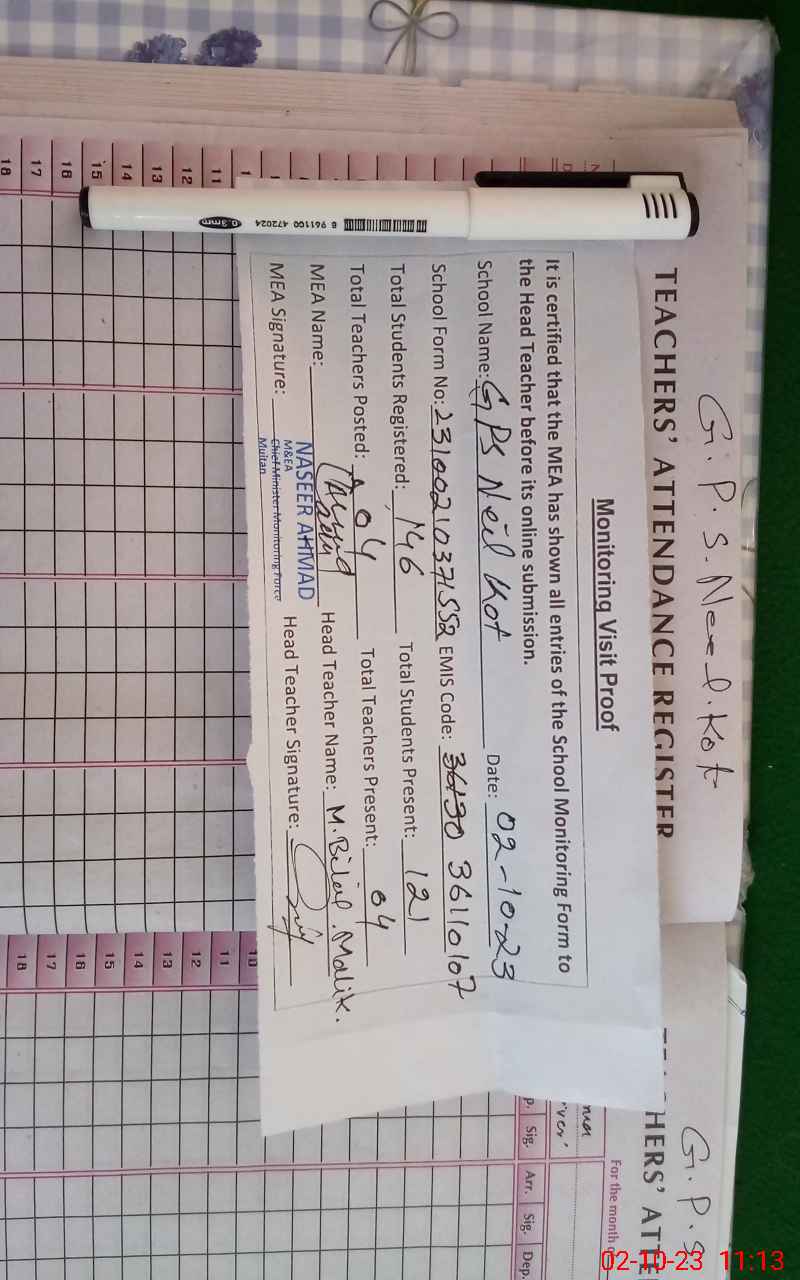 G. P. S. Neel. Kot
TEACHERS' ATTENDANCE REGISTER
Monitoring Visit Proof
It is certified that the MEA has shown all entries of the School Monitoring Form to
the Head Teacher before its online submission.
School Name: GPS Neil Kot Date: 02-10-23
School Form No: EMIS Code: 36110107
Total Students Registered: 146 Total Students Present: 121
Total Teachers Posted: 04 Total Teachers Present: 04
MEA Name: Head Teacher Name: M. Bilal. Malik.
NASEER AHMAD
MEA Signature: Head Teacher Signature:
M&EA
Chief Minister Monitoring Force
Multan
8 961100 472024 0.3mm
11 12 13 14 15 16 17 18
10 11 12 13 14 15 16 17 18
G. P. S
HERS' ATTE
For the month
Sig. Arr. Sig. Dep.
02-10-23 11:13